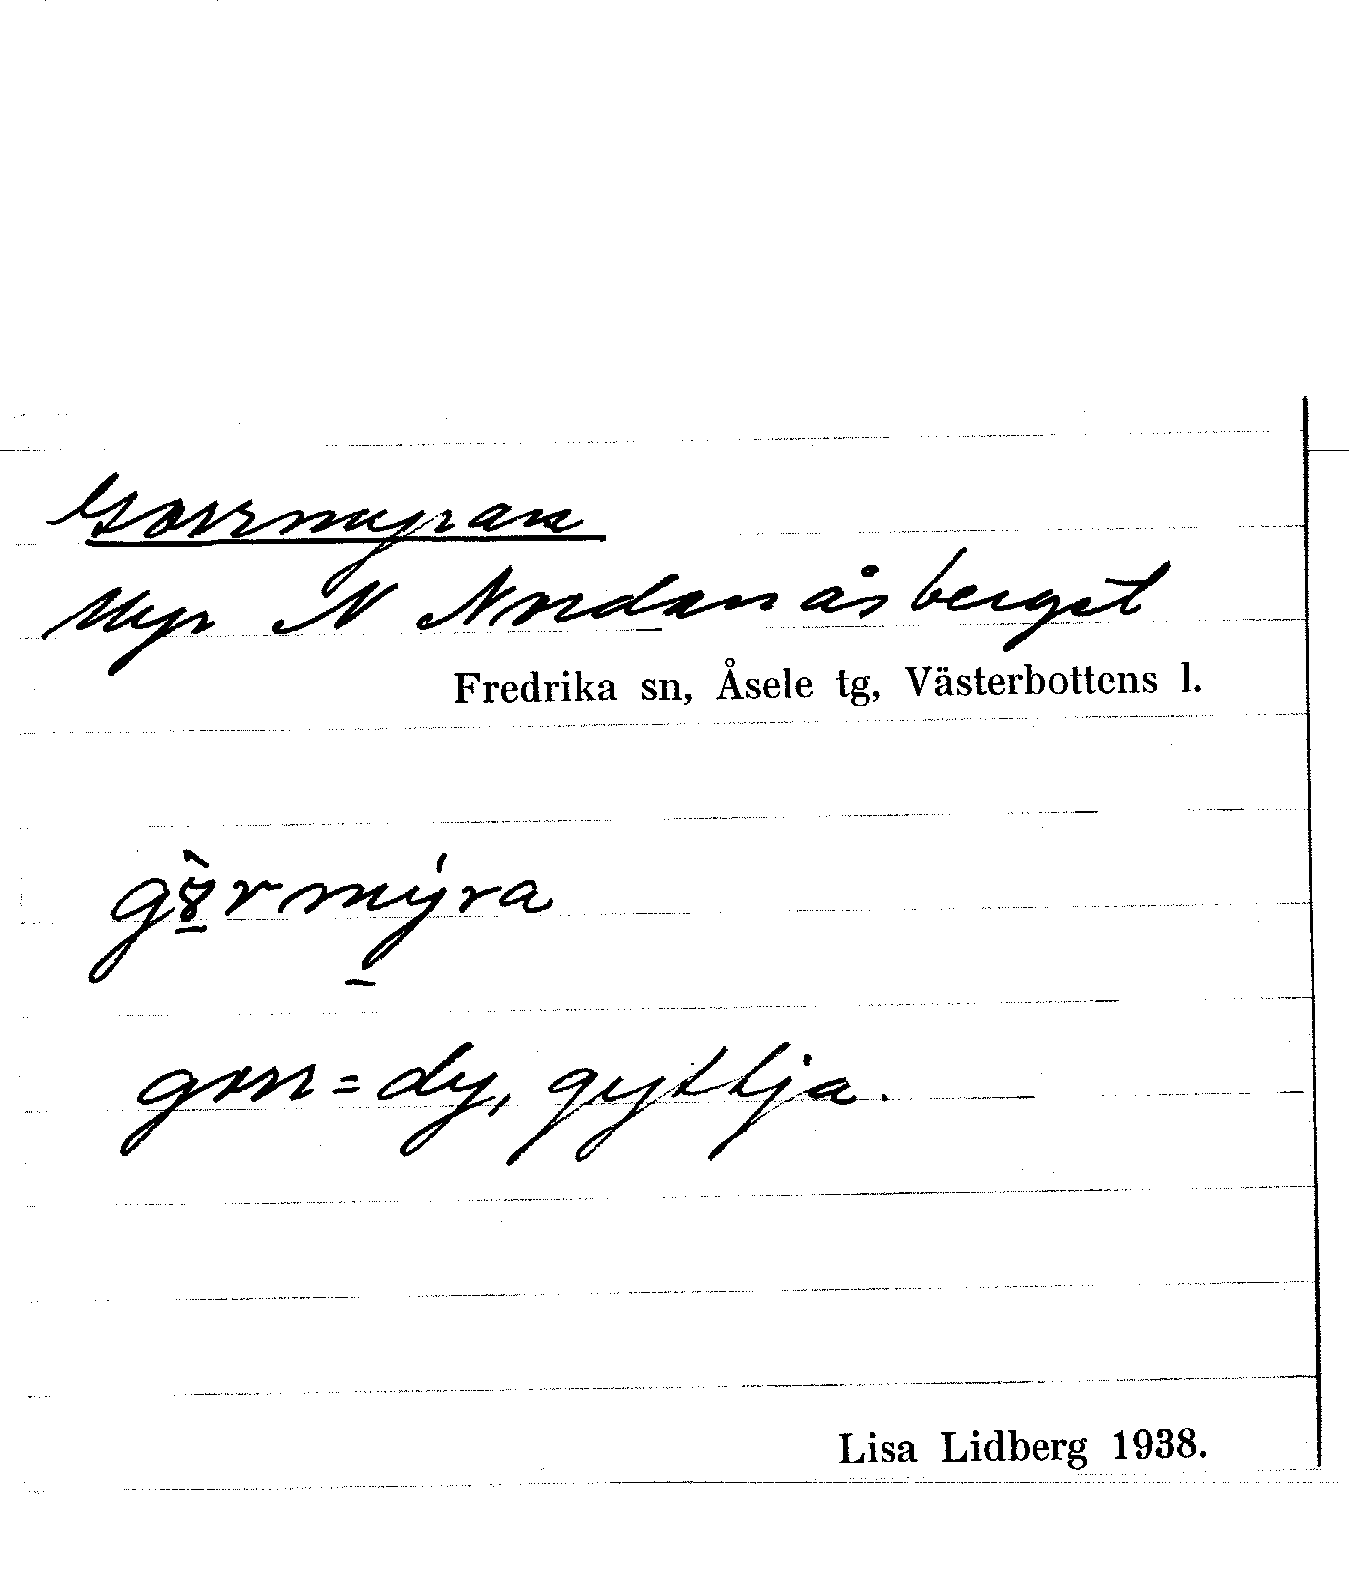 Gorrmyran
Myr N Nordanåsberget
Fredrika sn, Åsele tg, Västerbottens l.
gȣ̀rmýra
gorr = dy, gyttja.
Lisa Lidberg 1938.